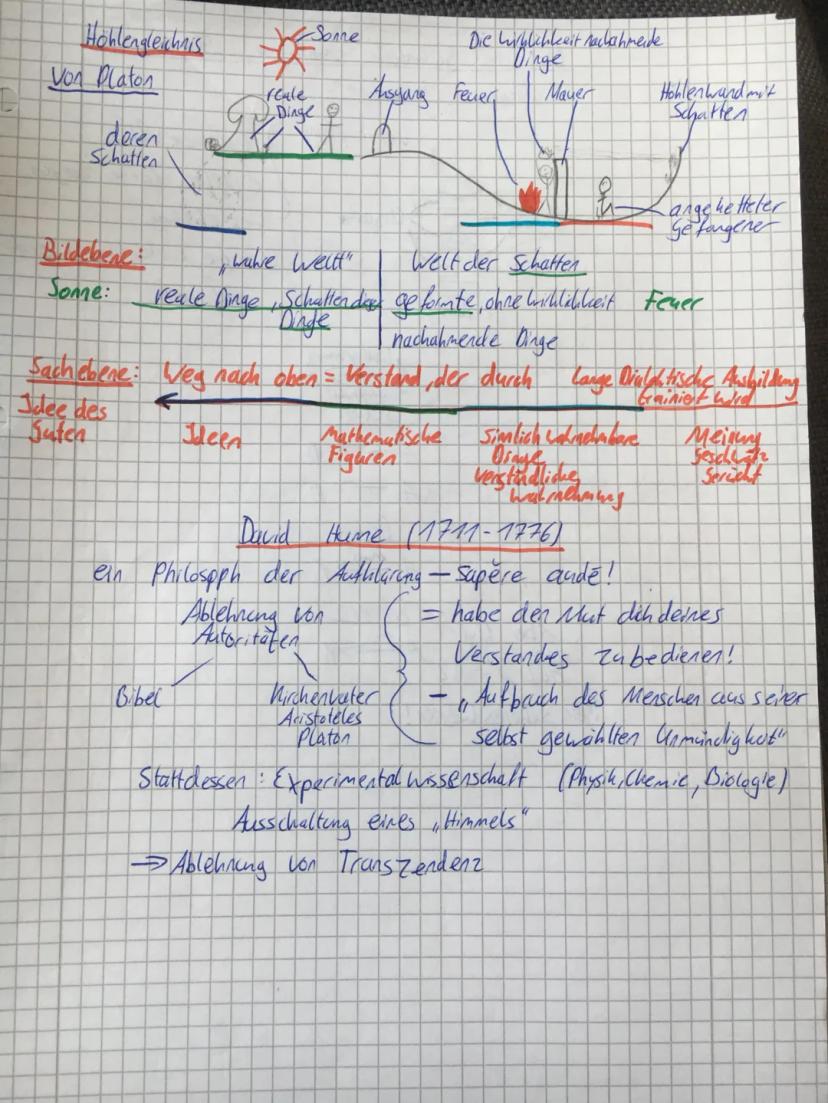 Höhlengleichnis
von Platon
Sonne
Die Wirklichkeit nachahmende
Dinge
reale
Dinge
Ausgang
Feuer
Mauer
Höhlenwand mit
Schatten
deren
Schatten
angeketteter
Gefangener
Bildebene:
„wahre Welt“
Welt der Schatten
Sonne:
reale Dinge, Schatten der
Dinge
geformte, ohne Wirklichkeit
nachahmende Dinge
Feuer
Sachebene: Weg nach oben = Verstand, der durch lange Dialektische Ausbildung
trainiert wird
Idee des
Guten
Ideen
Mathematische
Figuren
Sinnlich wahrnehmbare
Dinge
verständliche
Wahrnehmung
Meinung
Geschwätz
Gerücht
David Hume (1711-1776)
ein Philospph der Aufklärung – sapēre audē!
Ablehnung von
Autoritäten
= habe den Mut dich deines
Verstandes zu bedienen!
Bibel
Kirchenväter
Aristoteles
Platon
– „Aufbruch des Menschen aus seiner
selbst gewählten Unmündigkeit“
Stattdessen: Experimentalwissenschaft (Physik, Chemie, Biologie)
Ausschaltung eines „Himmels“
⇒ Ablehnung von Transzendenz